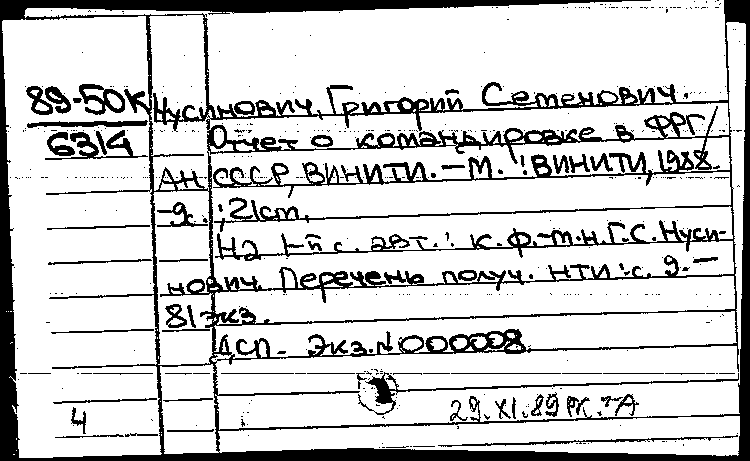 89-50К
6314
Нусинович, Григорий Семенович.
Отчет о командировке в ФРГ/
АН СССР, ВИНИТИ. – М. : ВИНИТИ, 1988.
-9с. ; 21см.
На 1-й с. авт.: к.ф.-м.н. Г.С. Нуси-
нович. Перечень получ. НТИ: с. 9. –
81экз.
ДСП – Экз. N 000008.
4
29.XI.89